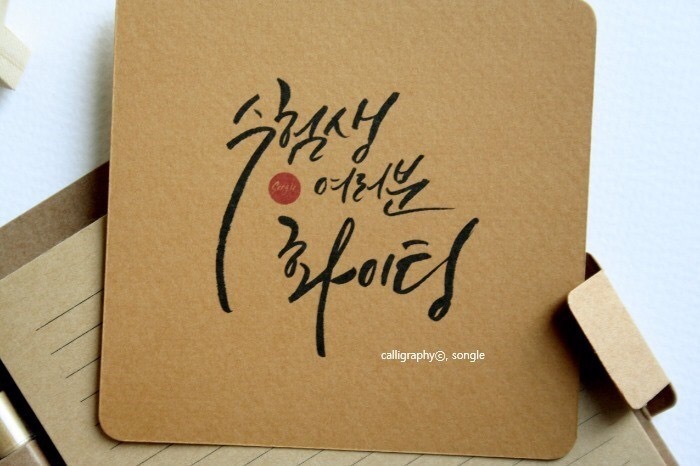 수험생
여러분
화이팅
calligraphyⓒ, songle